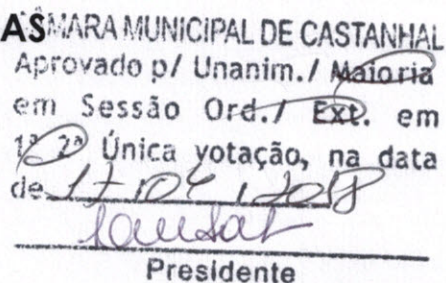 ASMARA MUNICIPAL DE CASTANHAL
Aprovado p/ Unanim./ Maioria
em Sessão Ord./ Ext. em
1ª 2ª Única votação, na data
de 17/04/2018
Presidente